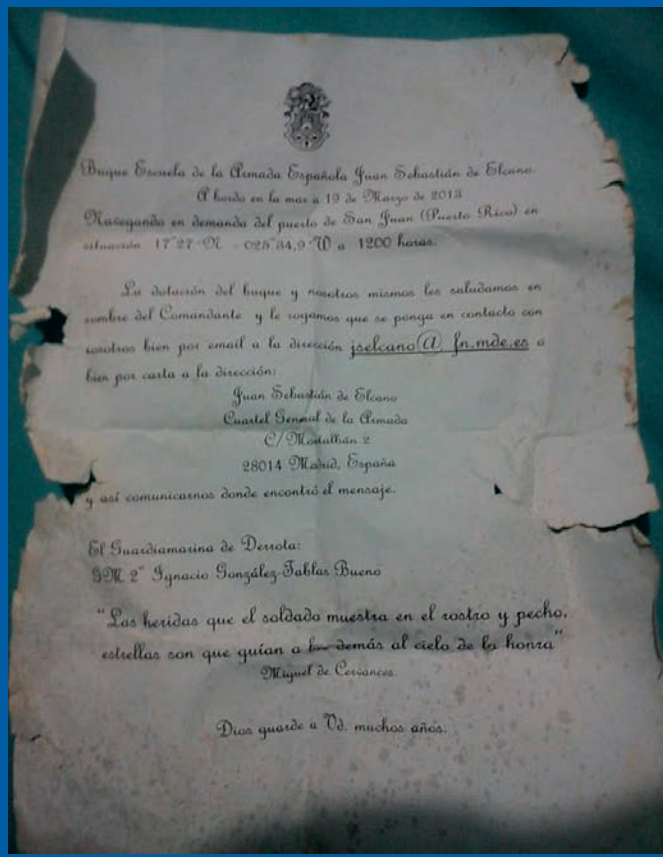 Buque Escuela de la Armada Española Juan Sebastián de Elcano
A bordo en la mar a 19 de Marzo de 2013
Navegando en demanda del puerto de San Juan (Puerto Rico) en
situación 17°27'-N - 025°34,9'-W a 1200 horas.
La dotación del buque y nosotros mismos les saludamos en
nombre del Comandante y le rogamos que se ponga en contacto con
nosotros bien por email a la dirección jselcano@fn.mde.es o
bien por carta a la dirección:
Juan Sebastián de Elcano
Cuartel General de la Armada
C/ Montalbán 2
28014 Madrid, España
y así comunicarnos donde encontró el mensaje.
El Guardiamarina de Derrota:
GM. 2º Ignacio González-Tablas Bueno
"Las heridas que el soldado muestra en el rostro y pecho,
estrellas son que guían a los demás al cielo de la honra"
Miguel de Cervantes.
Dios guarde a Vd. muchos años.